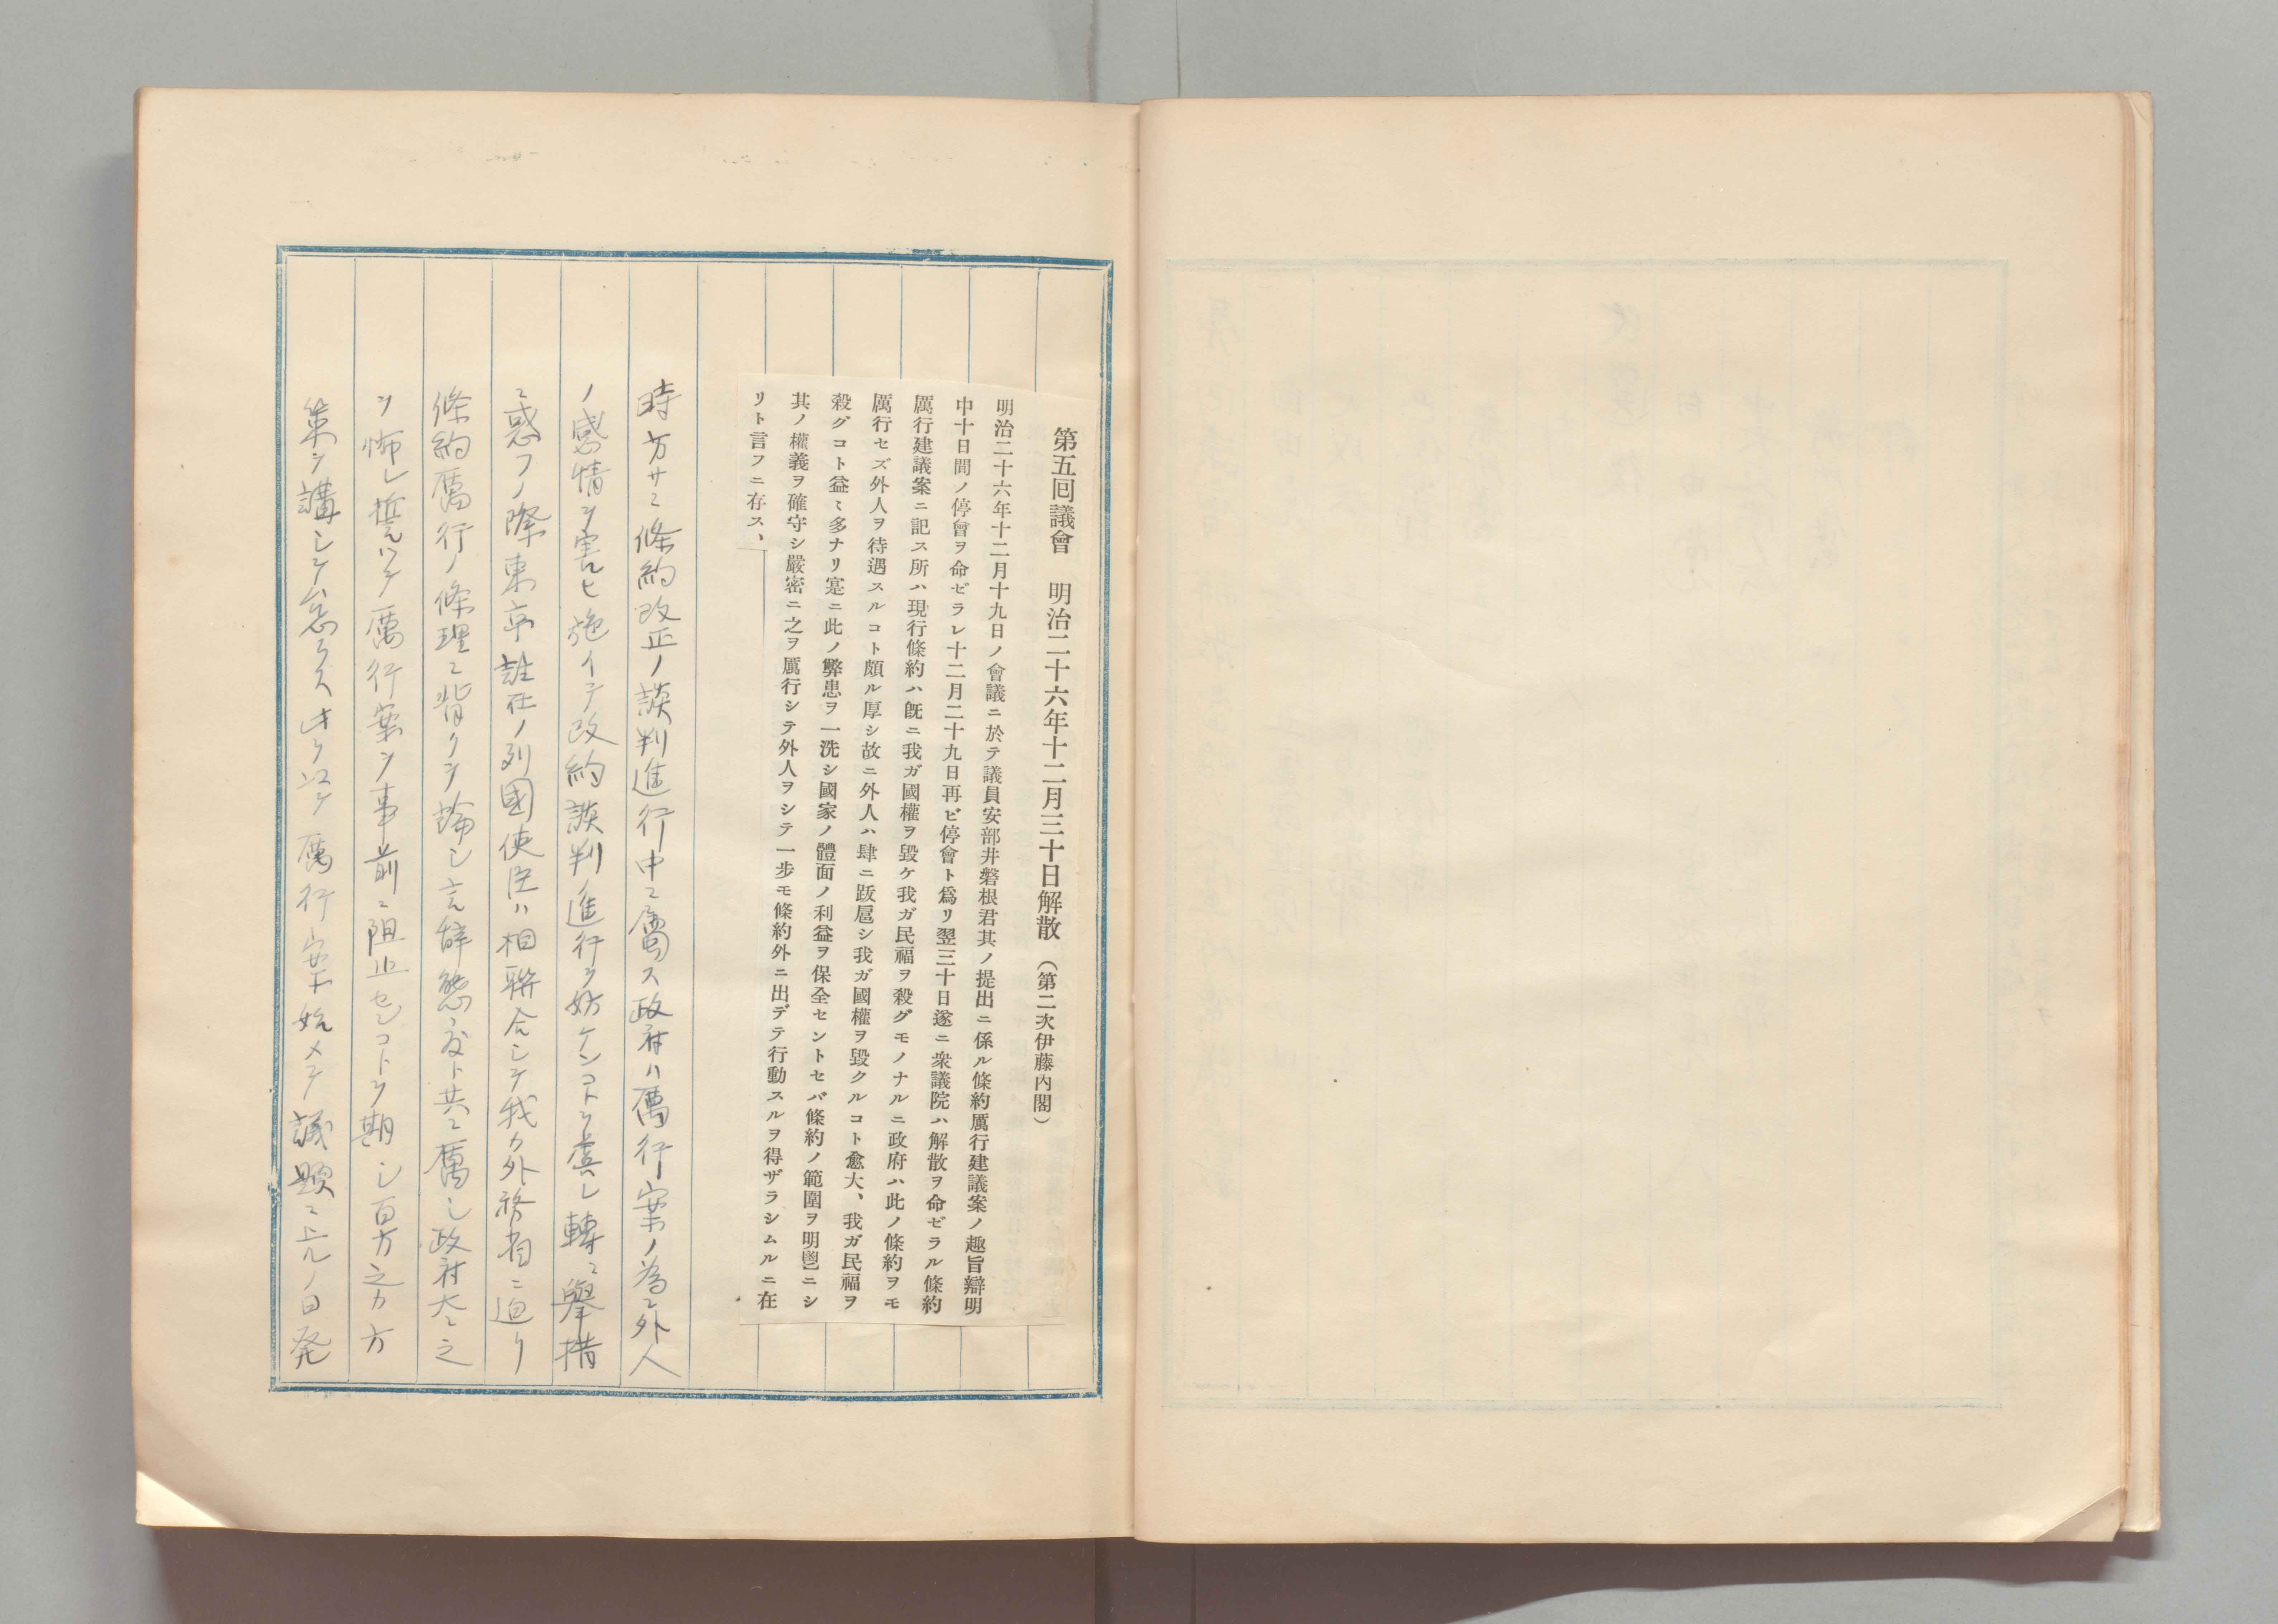 第五回議會　明治二十六年十二月三十日解散（第二次伊藤内閣）
明治二十六年十二月十九日ノ會議ニ於テ議員安部井磐根君其ノ提出ニ係ル條約厲行建議案ノ趣旨辯明
中十日間ノ停會ヲ命ゼラレ十二月二十九日再ビ停會ト爲リ翌三十日遂ニ衆議院ハ解散ヲ命ゼラル條約
厲行建議案ニ記ス所ハ現行條約ハ既ニ我ガ國權ヲ毀ケ我ガ民福ヲ殺グモノナルニ政府ハ此ノ條約ヲモ
厲行セズ外人ヲ待遇スルコト頗ル厚シ故ニ外人ハ肆ニ跋扈シ我ガ國權ヲ毀クルコト愈大、我ガ民福ヲ
殺グコト益〻多ナリ寔ニ此ノ弊患ヲ一洗シ國家ノ體面ノ利益ヲ保全セントセバ條約ノ範圍ヲ明鬯ニシ
其ノ權義ヲ確守シ嚴密ニ之ヲ厲行シテ外人ヲシテ一步モ條約外ニ出デテ行動スルヲ得ザラシムルニ在
リト言フニ存ス、
時方サニ條約改正ノ談判進行中ニ屬ス政府ハ厲行案ノ為ニ外人
ノ感情ヲ害シ施イテ改約談判進行ヲ妨ケンコトヲ虞レ轉ニ擧措
ニ惑フノ際東京註在ノ列國使臣ハ相聯合シテ我カ外務省ニ迫リ
條約厲行ノ條理ニ背クヲ論シ言辞態度ト共ニ厲シ政府大ニ之
ヲ怖レ誓ツテ厲行案ヲ事前ニ阻止センコトヲ期シ百方之カ方
策ヲ講シテ怠ラス 厲行案始メテ議題ニ上ルノ日発